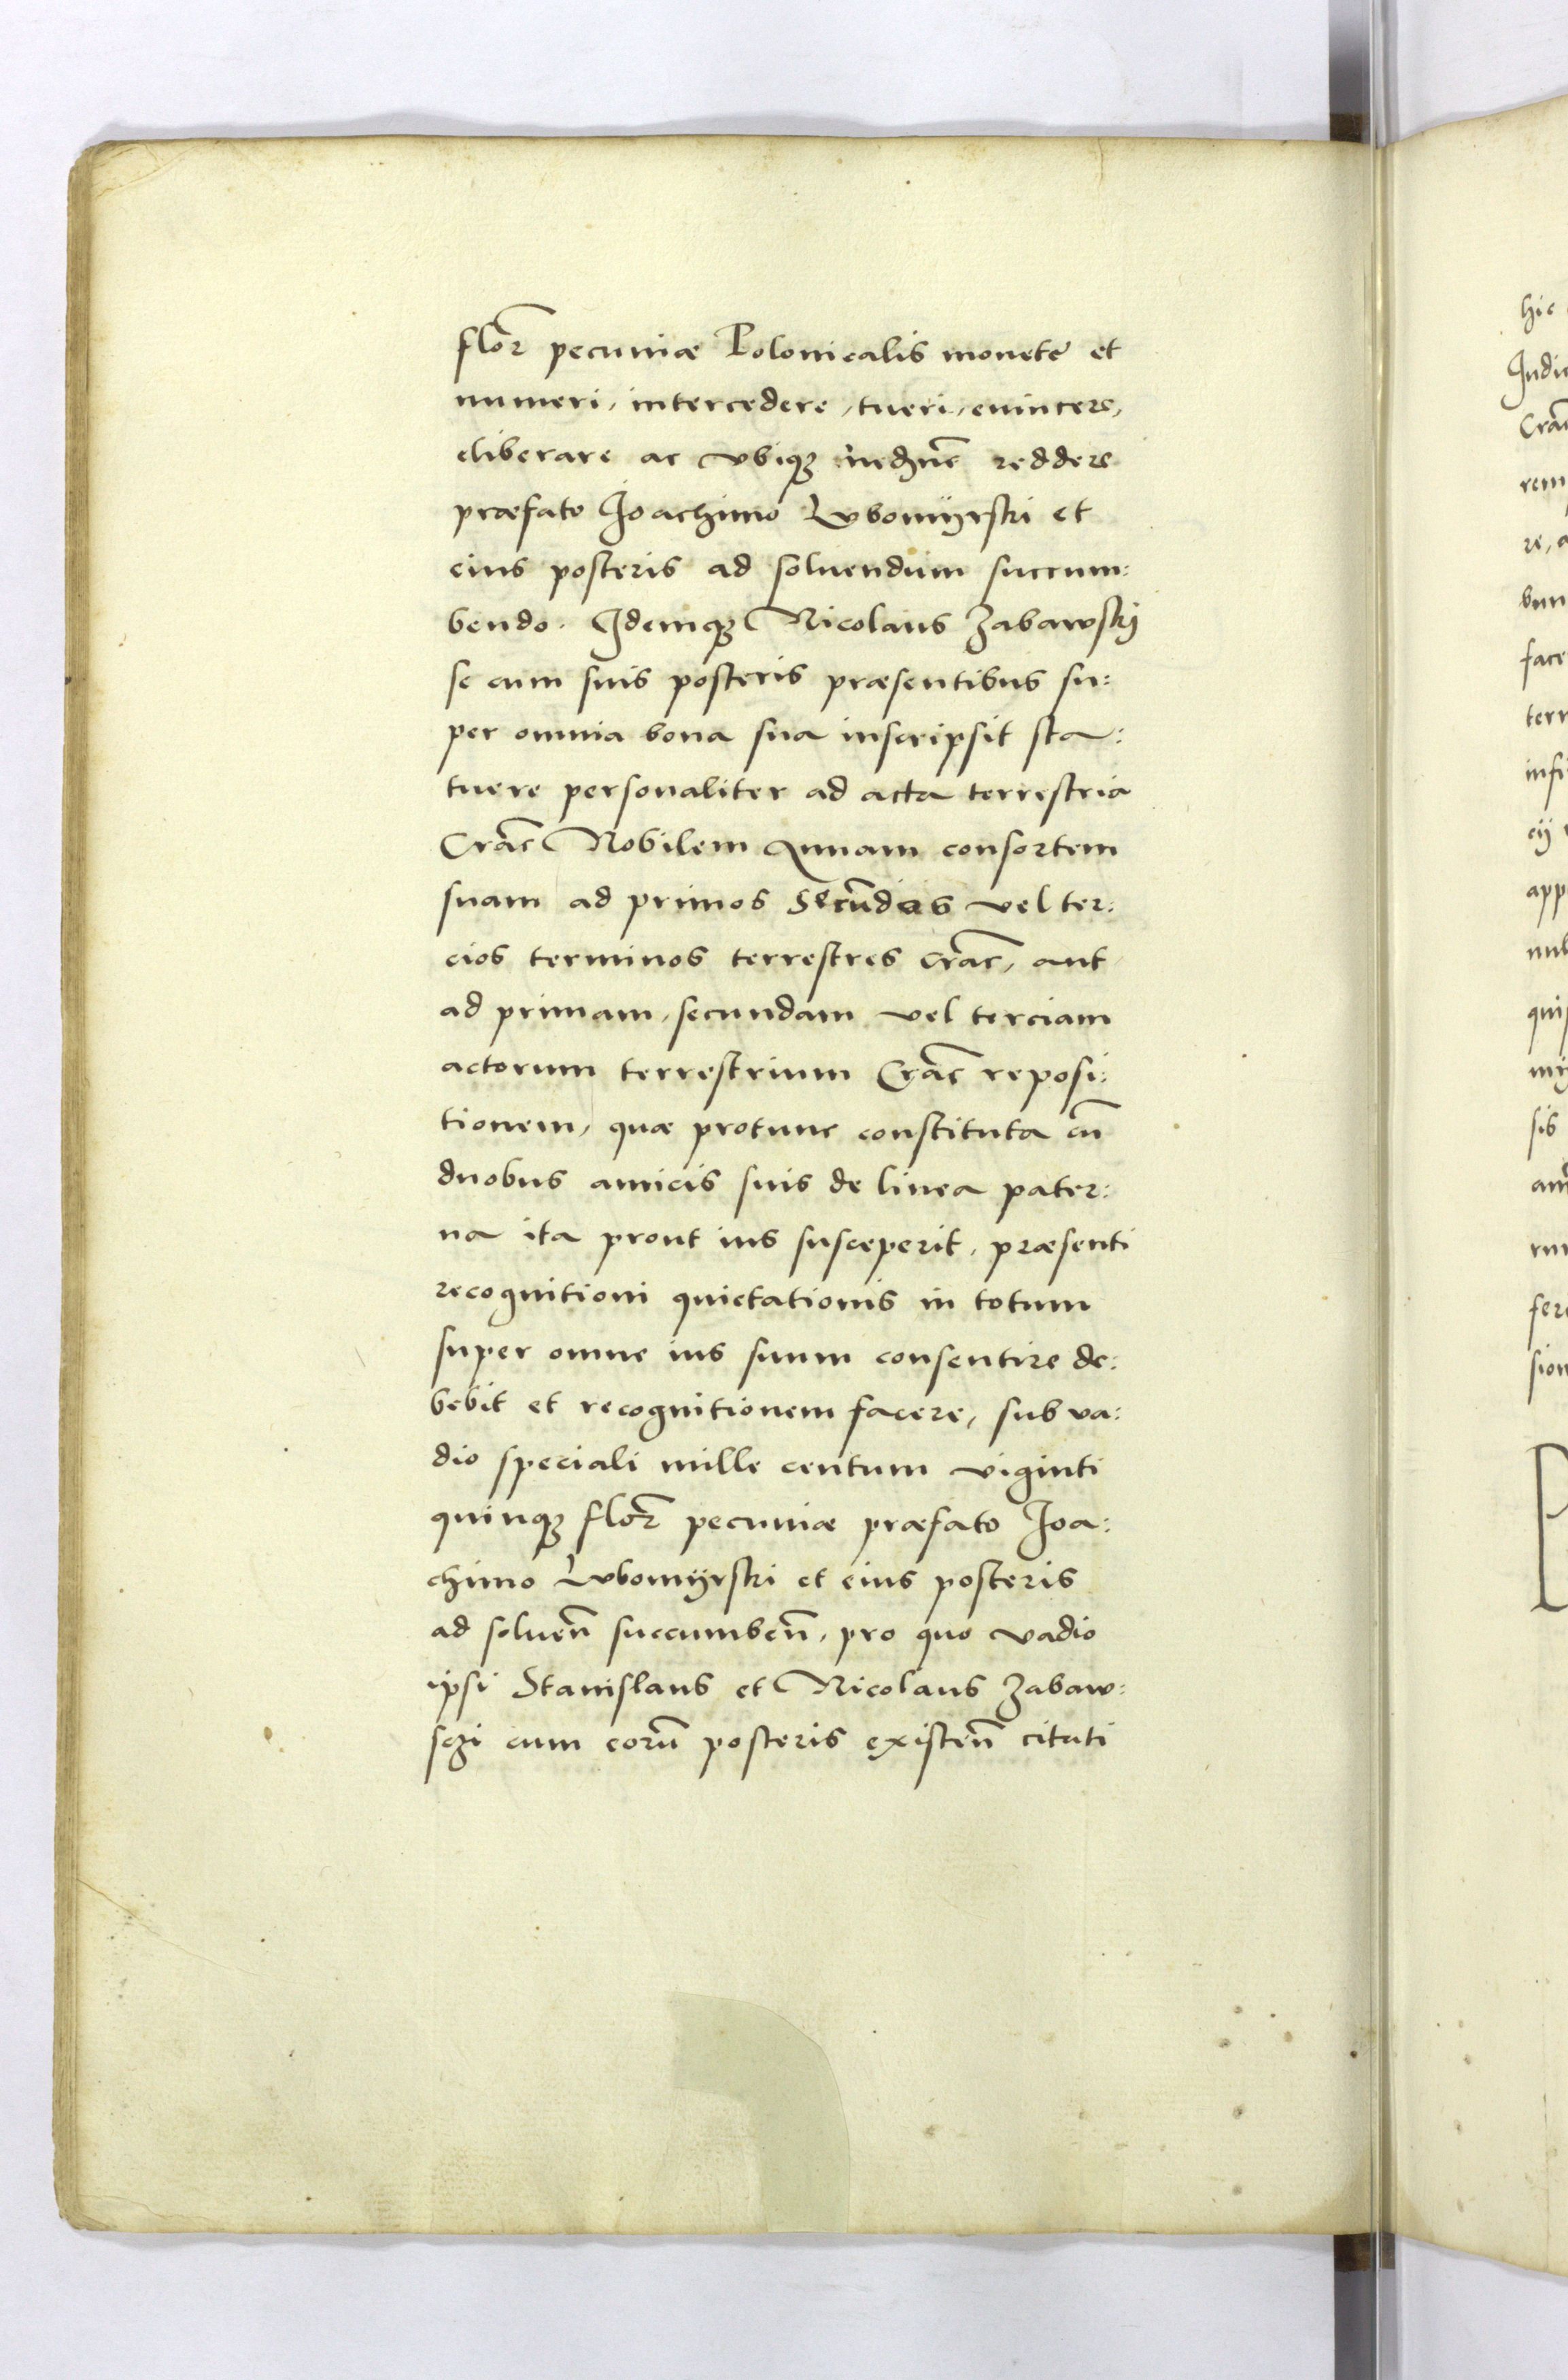 flor̃ pecuniæ Polonicalis monete et
numeri, intercedere, tueri, euincere,
eliberare ac vbiqꝫ reddere
præfato Joachimo Lvbomÿrski et
eius posteris ad soluendum succum:
bendo. Idemqꝫ Nicolaus Zabawskÿ
se cum suis posteris præsentibus su:
per omnia bona sua inscripsit sta:
tuere personaliter ad acta terrestria
Crac̃ Nobilem Annam consortem
suam ad primos secũdos vel ter:
cios terminos terrestres Crac̃, aut
ad primam, secundam vel terciam
actorum terrestrium Crac̃ reposi:
tionem, quæ protunc constituta cũ
duobus amicis suis de linea pater:
na ita prout ius susceperit, præsenti
recognitioni quietationis in totum
super omne ius suum consentire de:
bebit et recognitionem facere, sub va:
dio speciali mille centum viginti
quinqꝫ flor̃ pecuniæ præfato Joa:
chimo Lvbomÿrski et eius posteris
ad soluen̄ succumben̄, pro quo vadio
ipsi Stanislaus et Nicolaus Zabaw:
sczi cum eorũ posteris existen̄ citati
hic
Crac̃
rem
re, a
bun
face
terr
infi
cÿ
app
sis
fer
sion